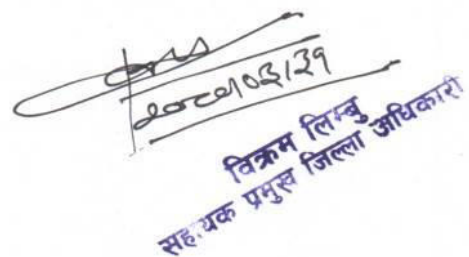 २०८१०३१३१
विक्रम लिम्बु
सहायक प्रमुख जिल्ला अधिकारी